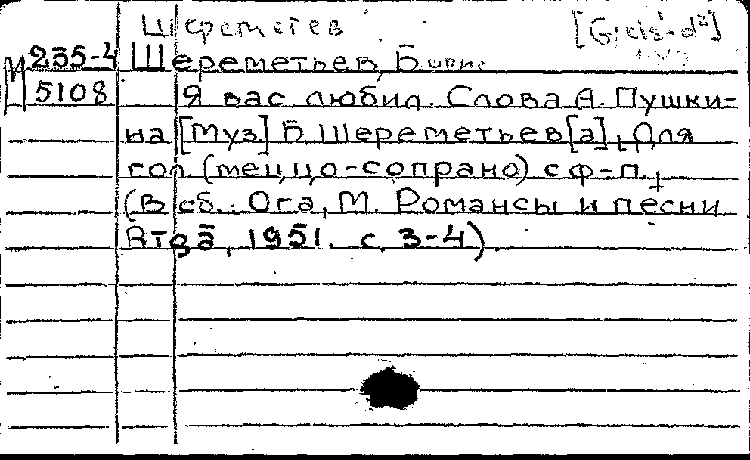 Шереметев [G; cis¹-d²]
М 235-4 Шереметьев, Борис
5108 Я вас любил. Слова А. Пушки-
на [Муз.] Б. Шереметьев[а], Для
гол. (меццо-сопрано) с ф-п.
(В сб.: Ога, М. Романсы и песни
1951. с. 3-4).